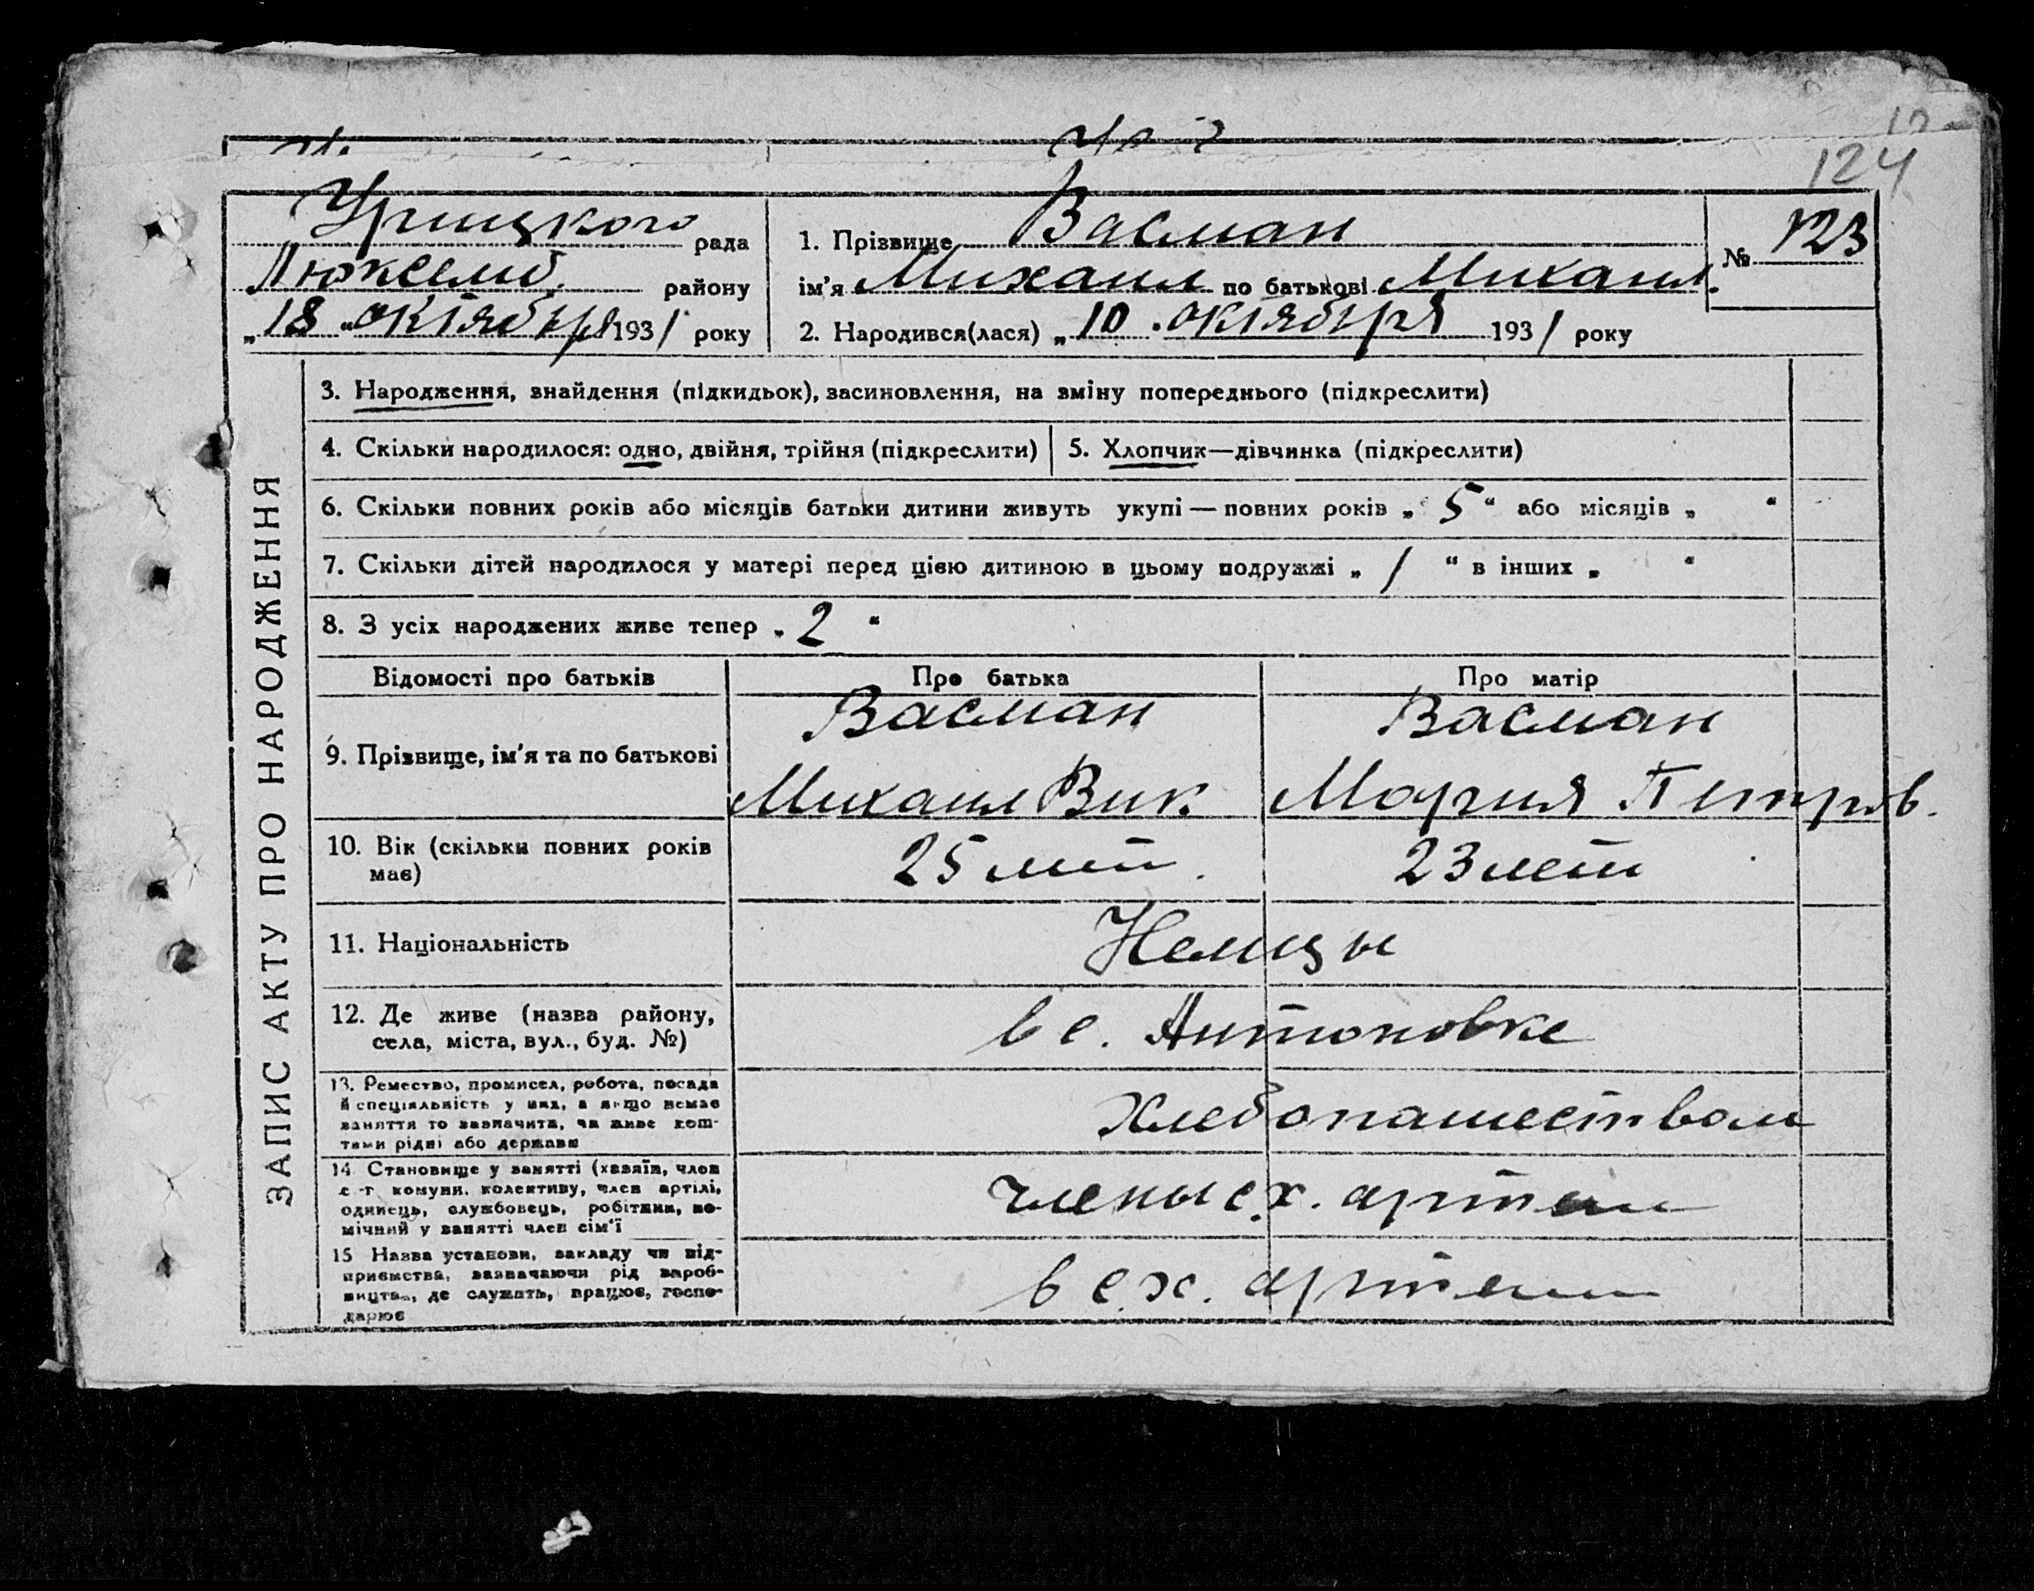 124
Урицкого рада
Люксемб. району
„18“ октября 1931 року
1. Прізвище Васман
ім'я Михаил по батькові Михаил.
№ 123
2. Народився(лася) „10“ октября 1931 року
ЗАПИС АКТУ ПРО НАРОДЖЕННЯ
3. Народження, знайдення (підкидьок), засиновлення, на зміну попереднього (підкреслити)
4. Скільки народилося: одно, двійня, трійня (підкреслити)
5. Хлопчик—дівчинка (підкреслити)
6. Скільки повних років або місяців батьки дитини живуть укупі — повних років „5“ або місяців „ “
7. Скільки дітей народилося у матері перед цією дитиною в цьому подружжі „1“ в інших „ “
8. З усіх народжених живе тепер „2“
Відомості про батьків
Про батька
Про матір
9. Прізвище, ім'я та по батькові
Васман
Михаил Вик
Васман
Мария Петров.
10. Вік (скільки повних років
має)
25 лет.
23 лет
11. Національність
Немцы
12. Де живе (назва району,
села, міста, вул., буд. №)
в с. Антоновке
13. Ремество, промисел, робота, посада
й спеціяльність у них, а якщо немає
заняття то зазначити, чи живе кош-
тами рідні або держави
Хлебопашеством
14 Становище у занятті (хазяїн, член
с.-г. комуни, колективу, член артілі,
одинець, службовець, робітник, по-
мічний у занятті член сім'ї
члены с.х. артели
15 Назва установи, закладу чи під-
приємства, зазначаючи рід вироб-
ництва, де служить, працює, госпо-
дарює
в с.х. артели